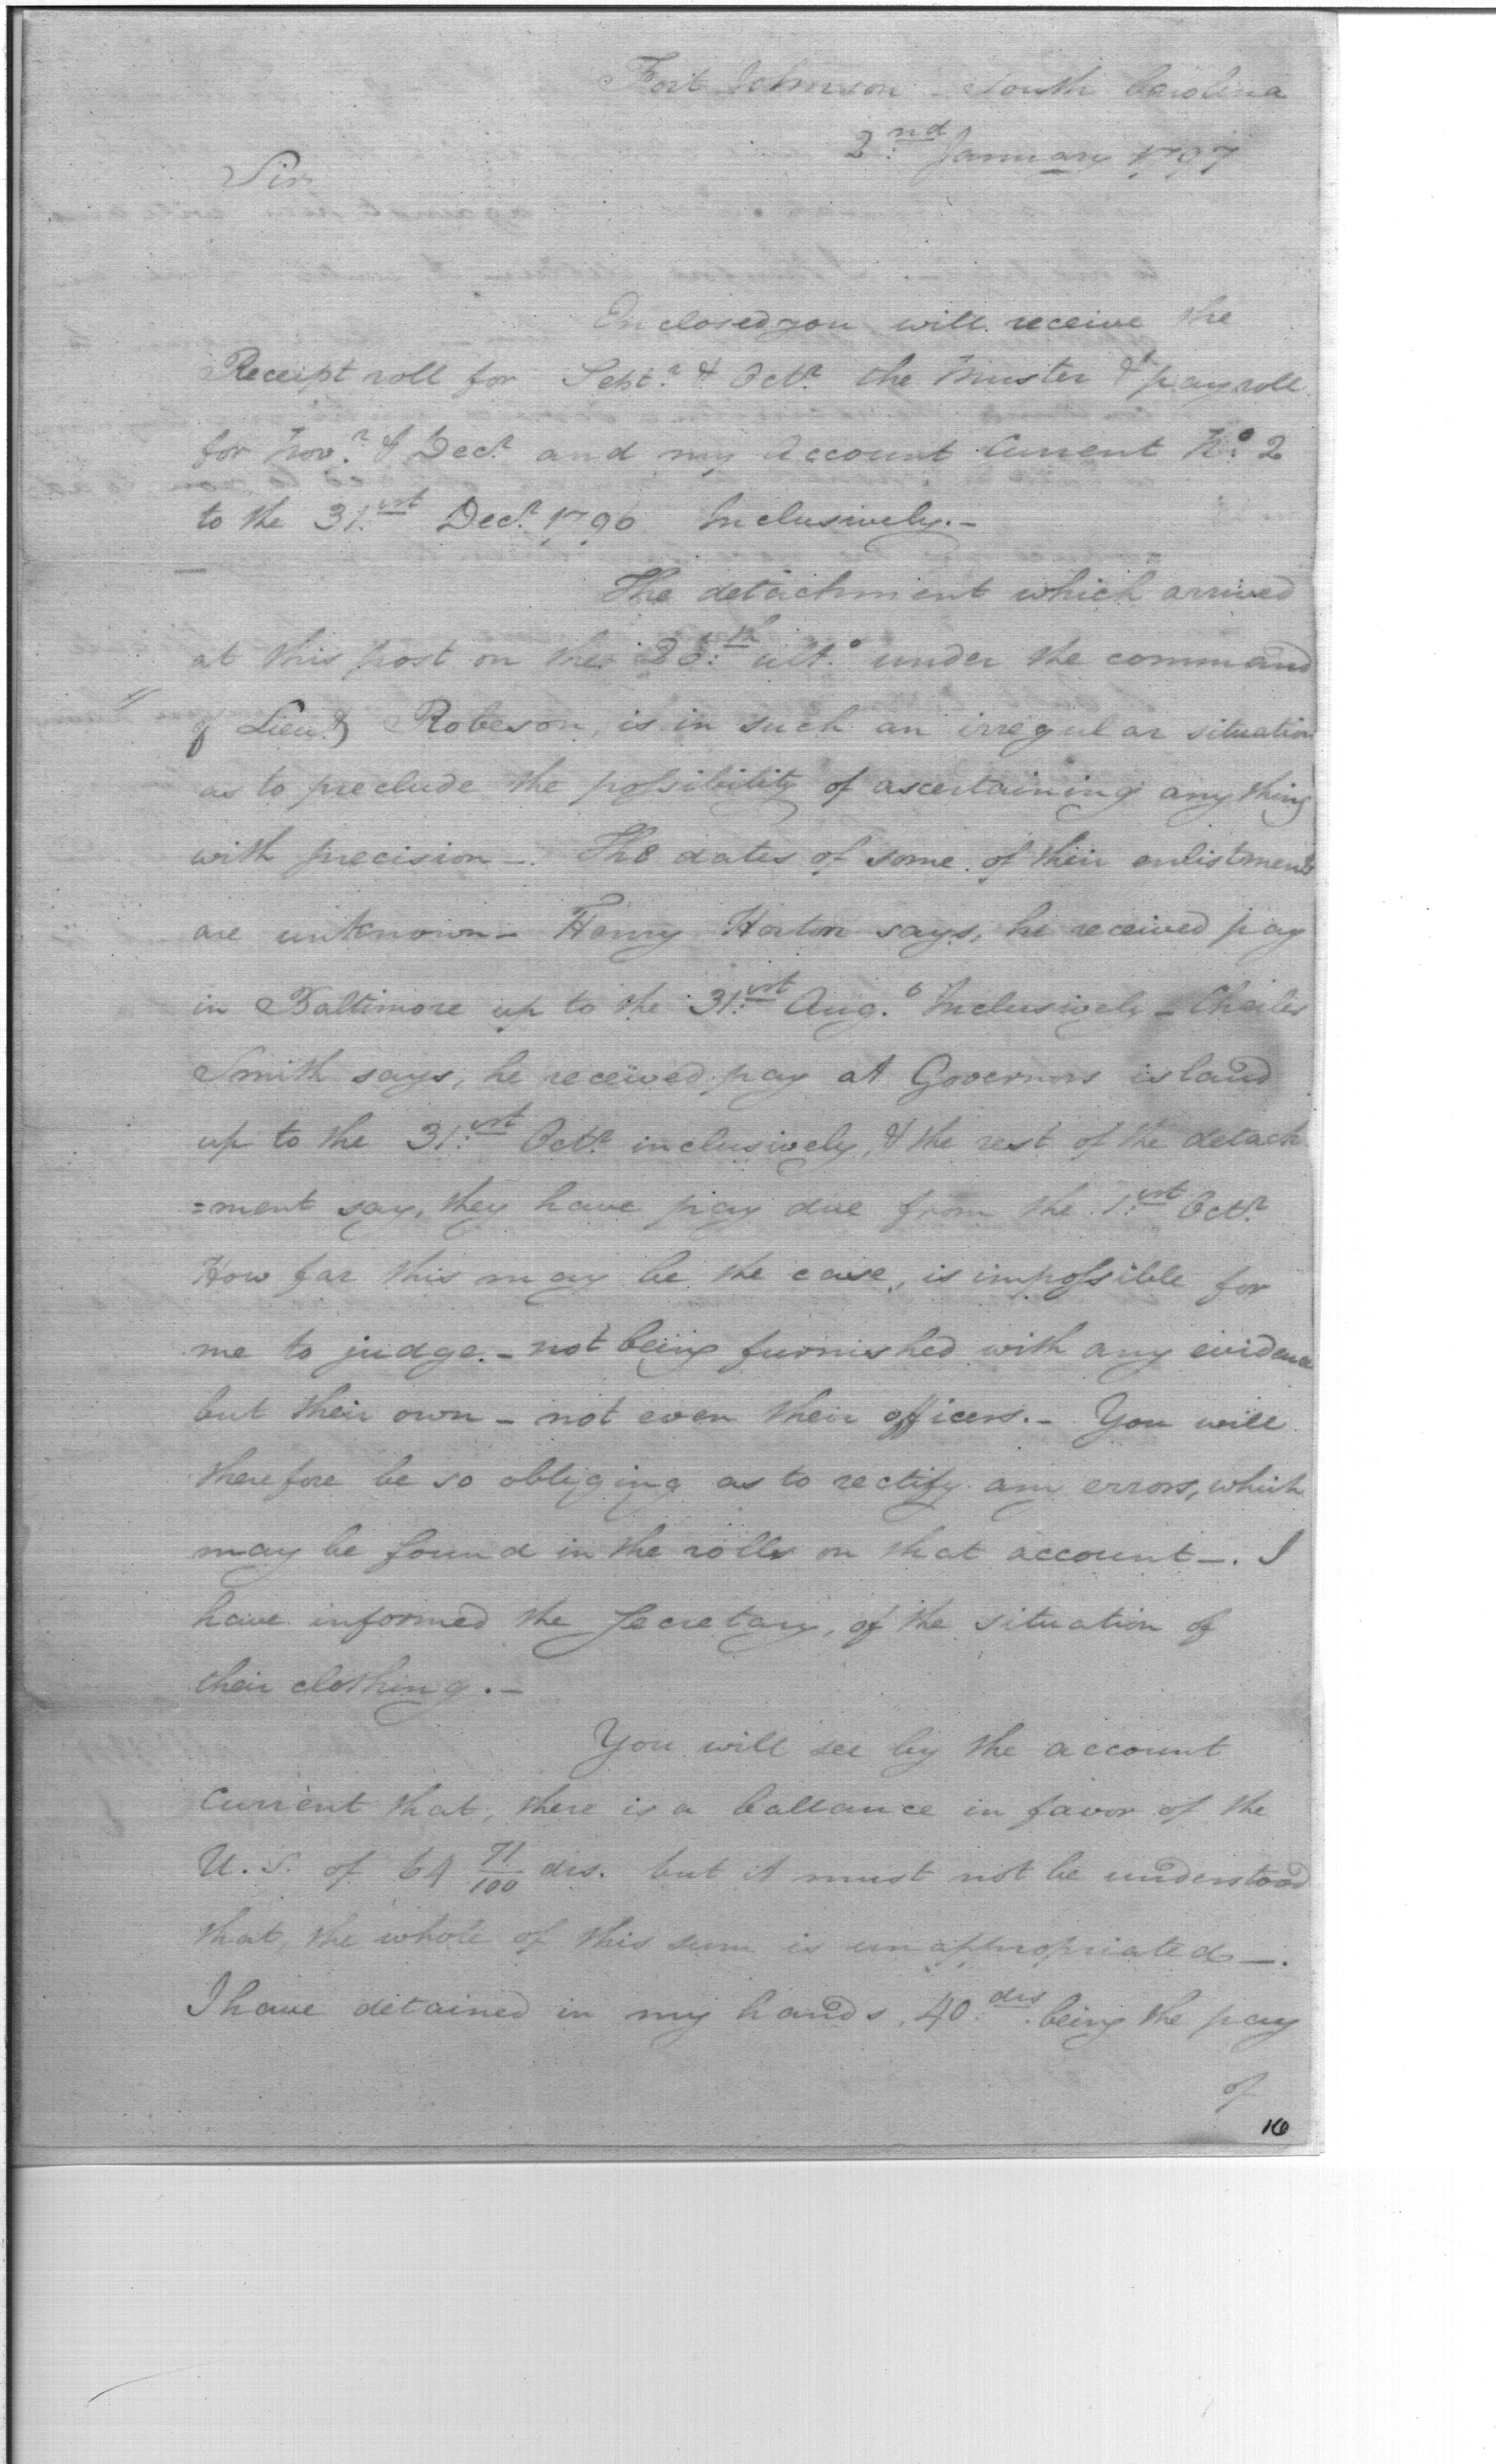 Fort Johnson South Carolina
2.nd January 1797
Sir
Enclosed you will receive the
Receipt roll for Sept.r & Oct.r the Muster & pay roll
for Nov.r & Dec.r and my Account Current N.o 2
to the 31.st Dec.r 1796 Inclusively.-
The detachment which arrived
at this post on the 28.th ult.o under the command
of Lieu.t Robeson, is in such an irregular situation
as to preclude the possibility of ascertaining any thing
with precision -. The dates of some of their enlistments
are unknown - Henry Horton says, he received pay
in Baltimore up to the 31.st Aug. Inclusively - Charles
Smith says, he received pay at Governors island
up to the 31.st Oct.r inclusively, & the rest of the detach
=ment say, they have pay due from the 1.st Oct.r
How far this may be the case, is impossible for
me to judge.- not being furnished with any evidence
but their own - not even their officers.- You will
therefore be so obliging as to rectify any errors, which
may be found in the rolls on that account -. I
have informed the Secretary, of the situation of
their clothing.-
You will see by the account
Current that, there is a ballance in favor of the
U.S. of 64 71/100 dls. but it must not be understood
that, the whole of this sum is unappropriated -.
I have detained in my hands, 40.dls being the pay
of
16